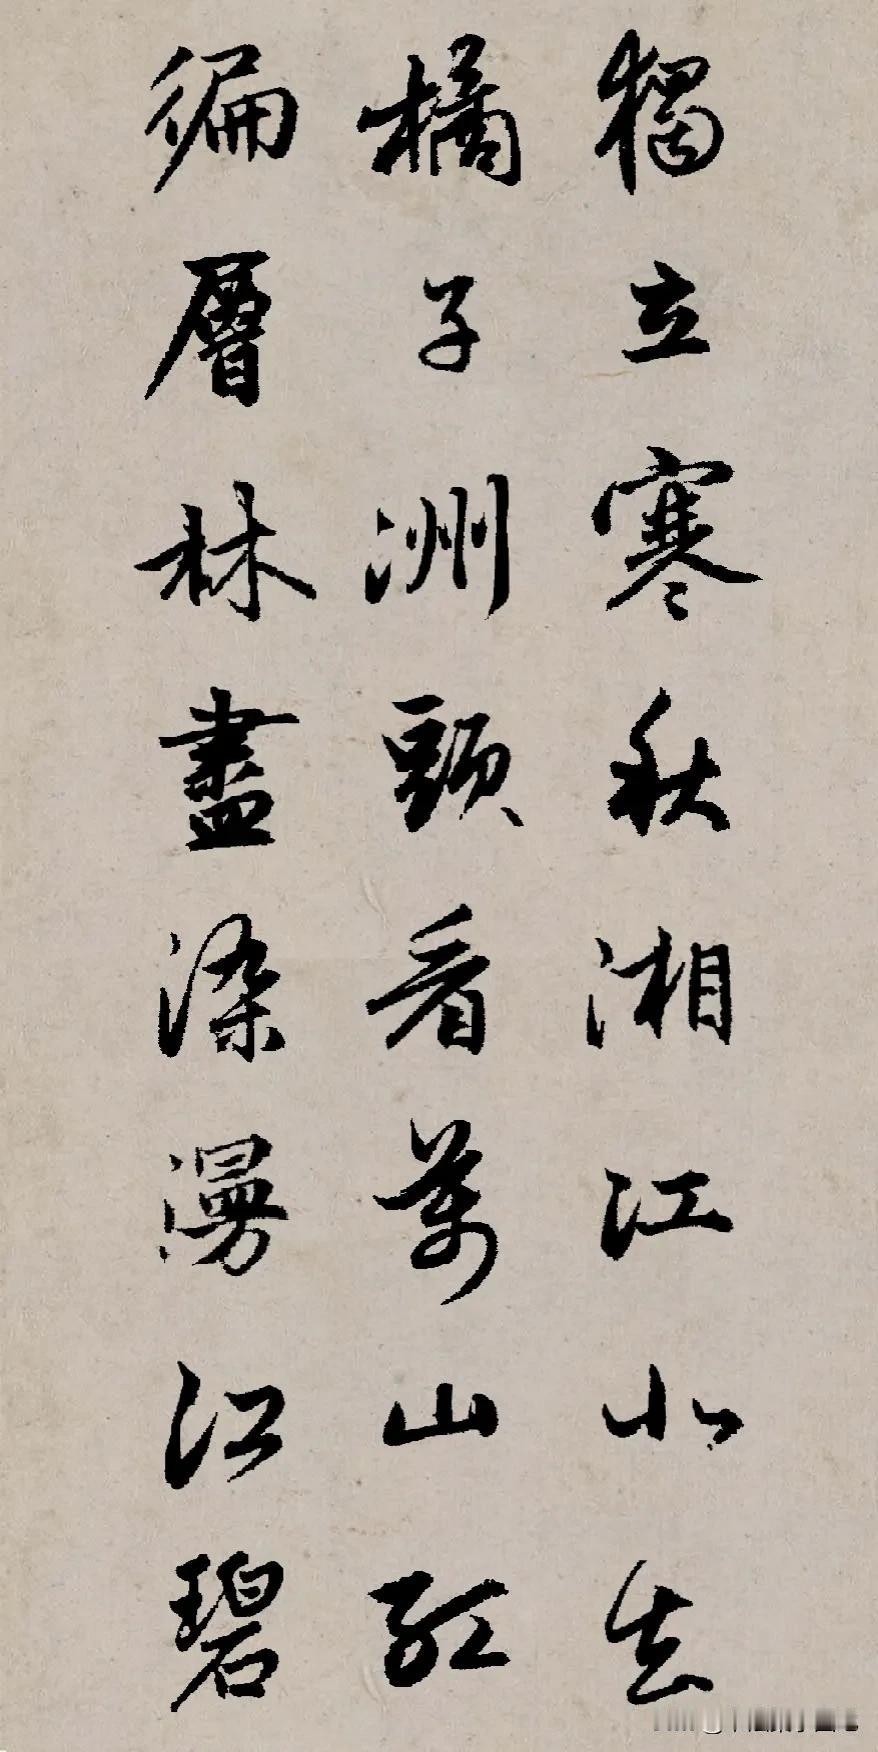 獨立寒秋湘江北去
橘子洲頭看萬山紅
徧層林盡染漫江碧